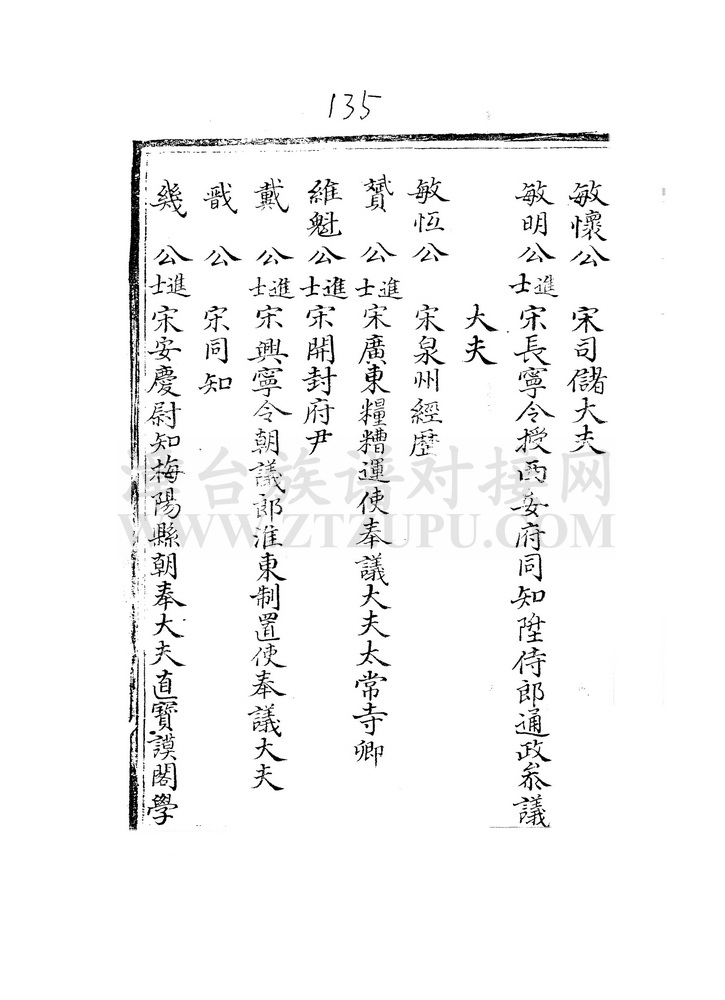 135
敏懷公　宋司儲大夫
敏明公進士宋長寧令授西安府同知陞侍郎通政叅議
大夫
敏恆公　宋泉州經歷
贇　公進士宋廣東糧糟運使奉議大夫太常寺卿
維魁公進士宋開封府尹
戴　公進士宋興寧令朝議郎淮東制置使奉議大夫
戬　公　宋同知
幾　公進士宋安慶尉知梅陽縣朝奉大夫直寶謨閣學
台族谱对接网
WWW.ZTZUPU.COM